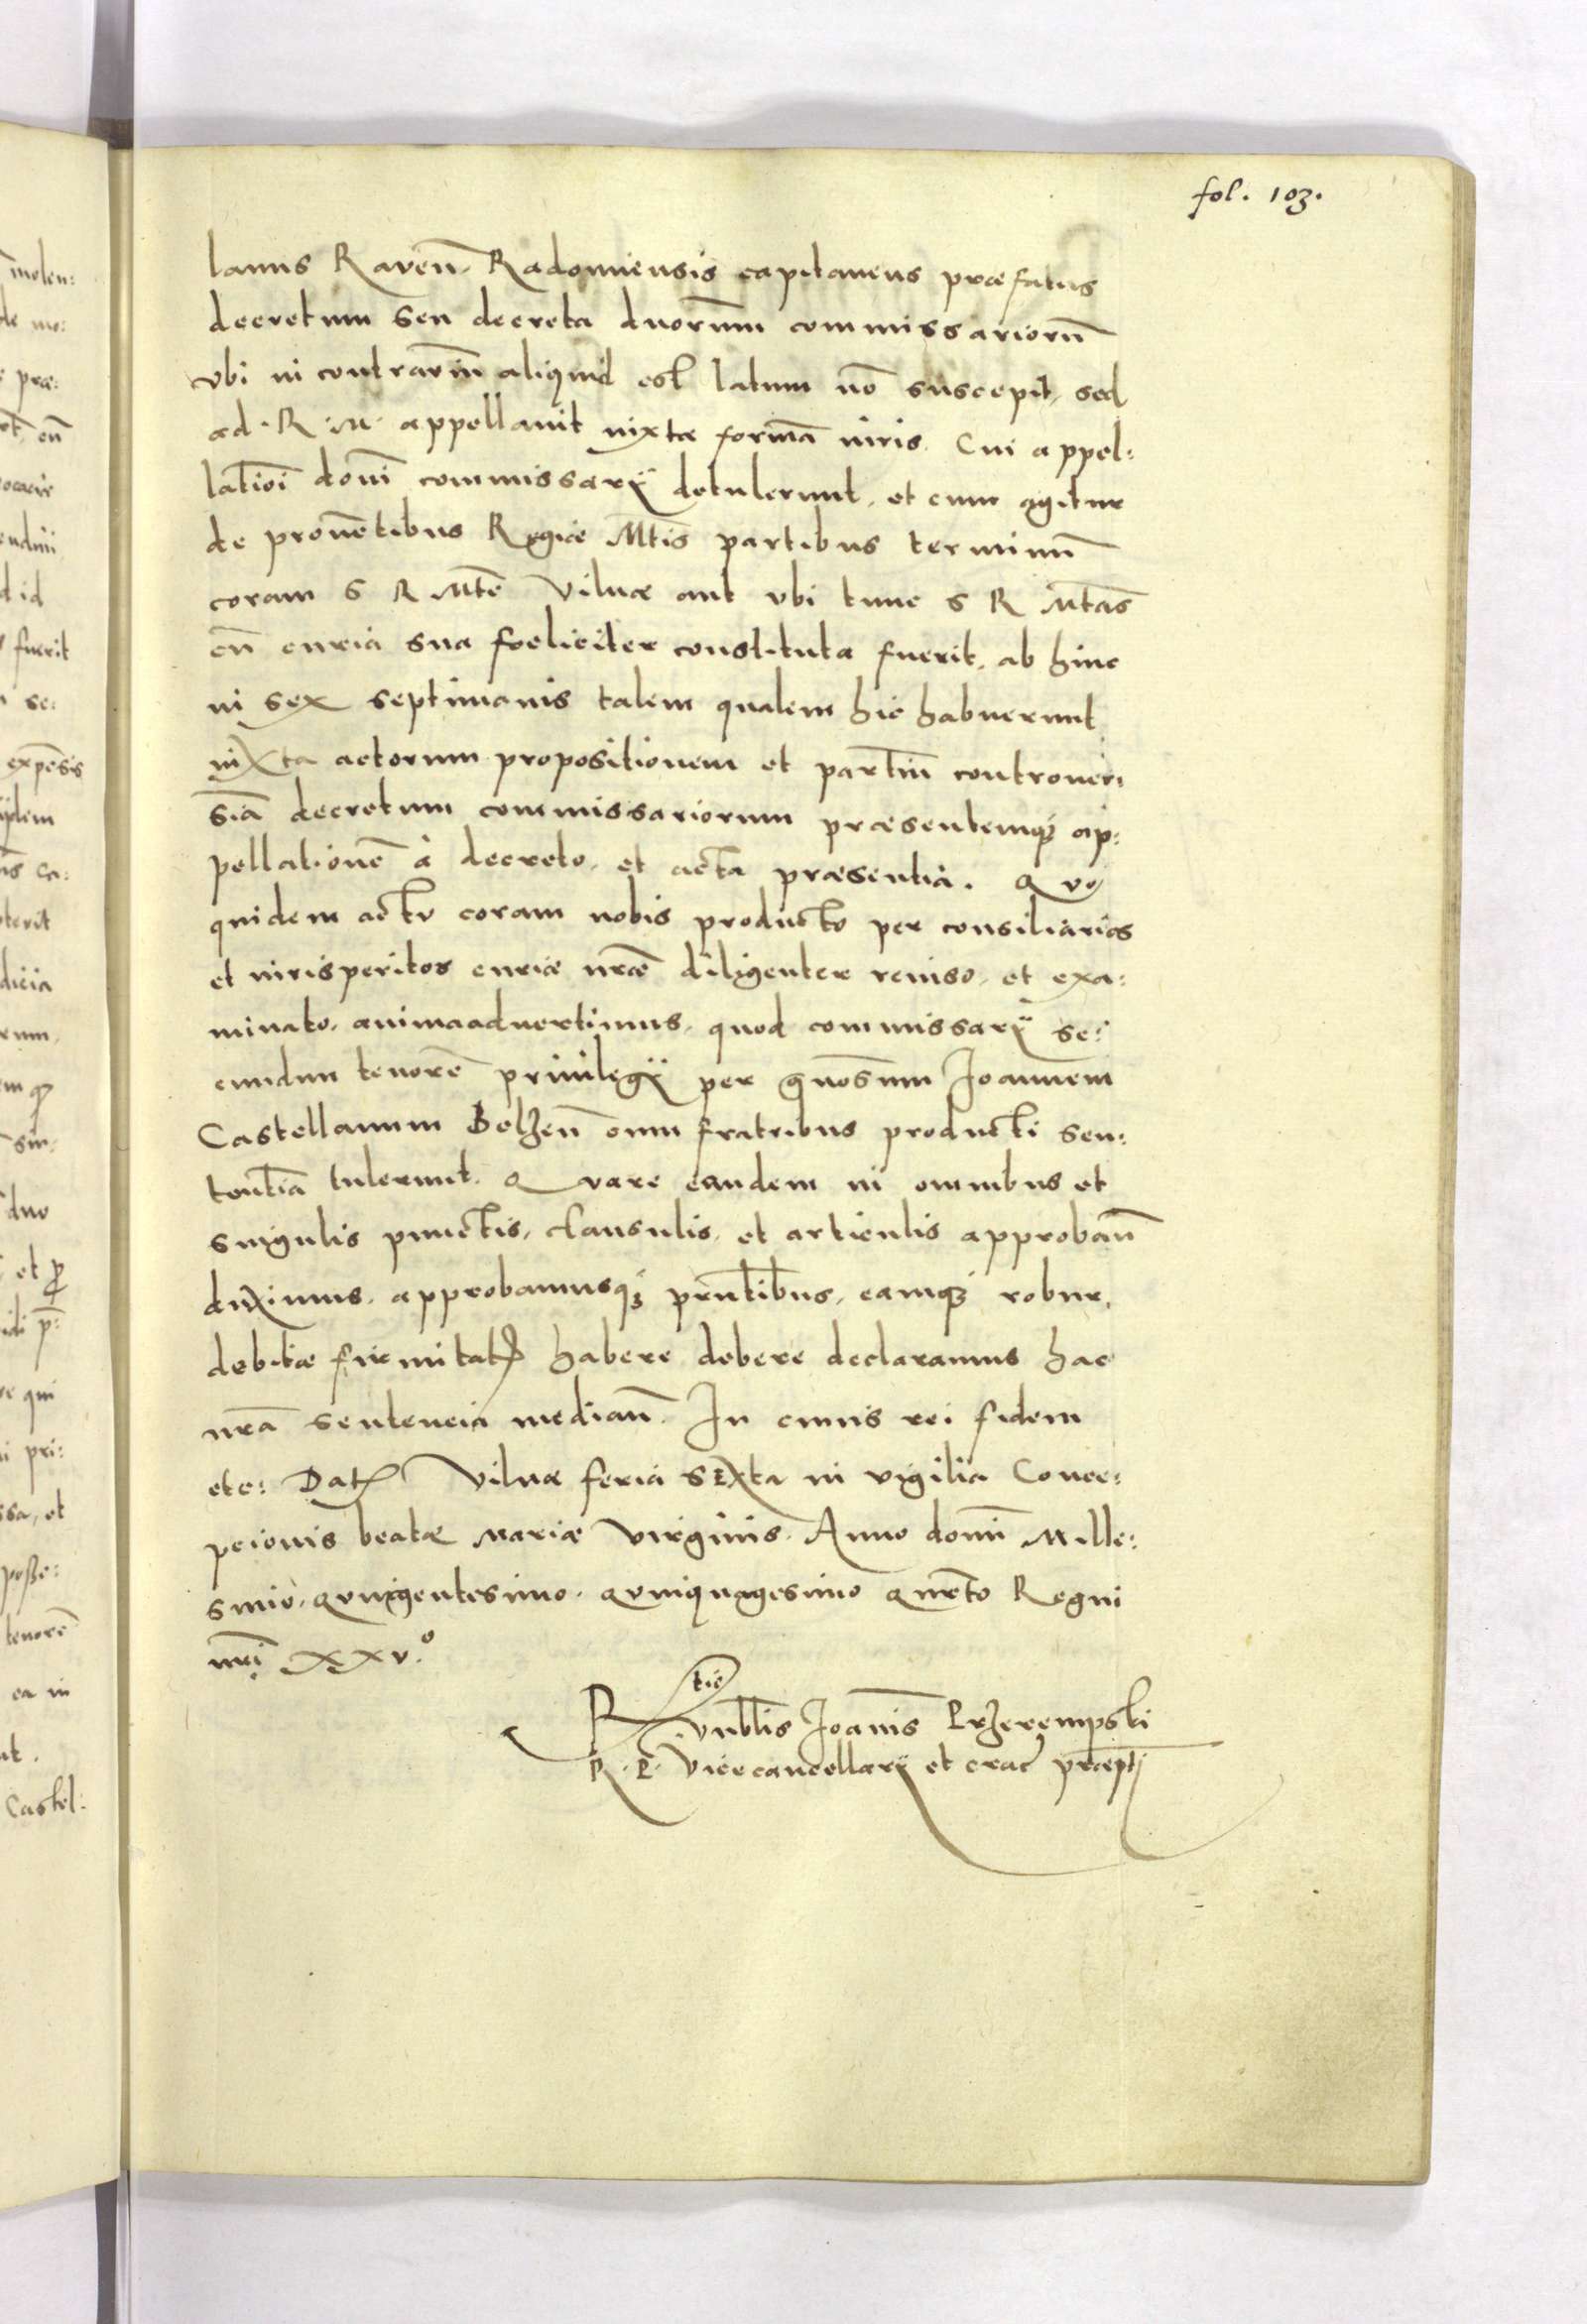 fol. 103.
lanus Raven̄. Radomiensis capitaneus præfatus
decretum seu decreta duorūm commissariorū
vbi in contrariū aliquid est latum nō suscepit, sed
ad . R . M . appellauit iuxta formā iuris. Cui appel:
lationi dom̄ commissarÿ detulerunt, et cum agitur
de prouētibus Regiæ Mtis partibus terminū
coram S R Mte Vilnæ aut vbi tunc S R Mtas
cū curia sua fœliciter constituta fuerit, ab hinc
in sex septimanis talem qualem hic habuerunt
iuxta actorum propositionem et partiū controuer:
siā decretum commissariorum præsentemqꝫ ap:
pellationē à decreto, et acta præsentia. Quo
quidem actu coram nobis producto per consiliarios
et iurisperitos curiæ nræ diligenter reuiso, et exa:
minato, animaaduertimus, quod commissarÿ se:
cundum tenorē priuilegÿ per gnosum Joannem
Castellanum Belzen̄ cum fratribus producti sen:
tentiā tulerunt. Quare eandem in omnibus et
singulis punctis, clausulis, et articulis approban̄
duximus, approbamusqꝫ prntibus, eamqꝫ robur
debitæ firmitatꝭ habere debere declaramus hac
nrā sentencia median̄. In cuius rei fidem
etc: Datꝭ Vilnæ feria sexta in vigilia Conce:
pcionis beatæ Mariæ Virginis. Anno domi Mille:
simo, quingentesimo, quinquagesimo quarto Regni
nri XXV.º
Rtio
Vnblis Joannis Przerempski
R. P. Vicecancellarÿ et crac præpti
molen:
et pꝑ
fuerit
se:
expēsis
ijdem
ca:
dicia
duo
pri:
tenorē
ea in
Castel: